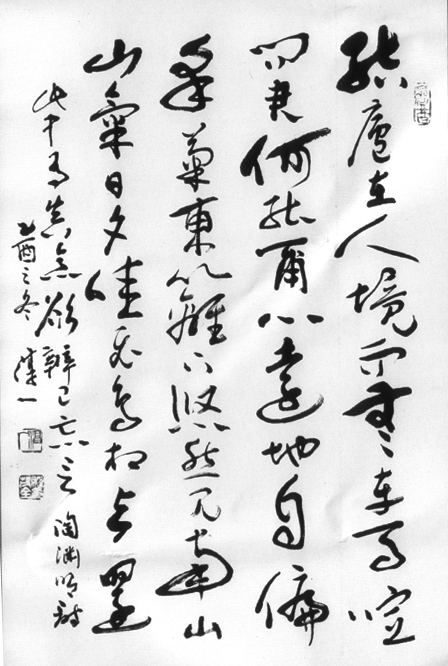 結廬在人境而無車馬喧
問君何能爾心遠地自偏
采菊東籬下悠然見南山
山氣日夕佳飛鳥相與還
此中有真意欲辨已忘言 陶淵明詩
乙酉之冬 一